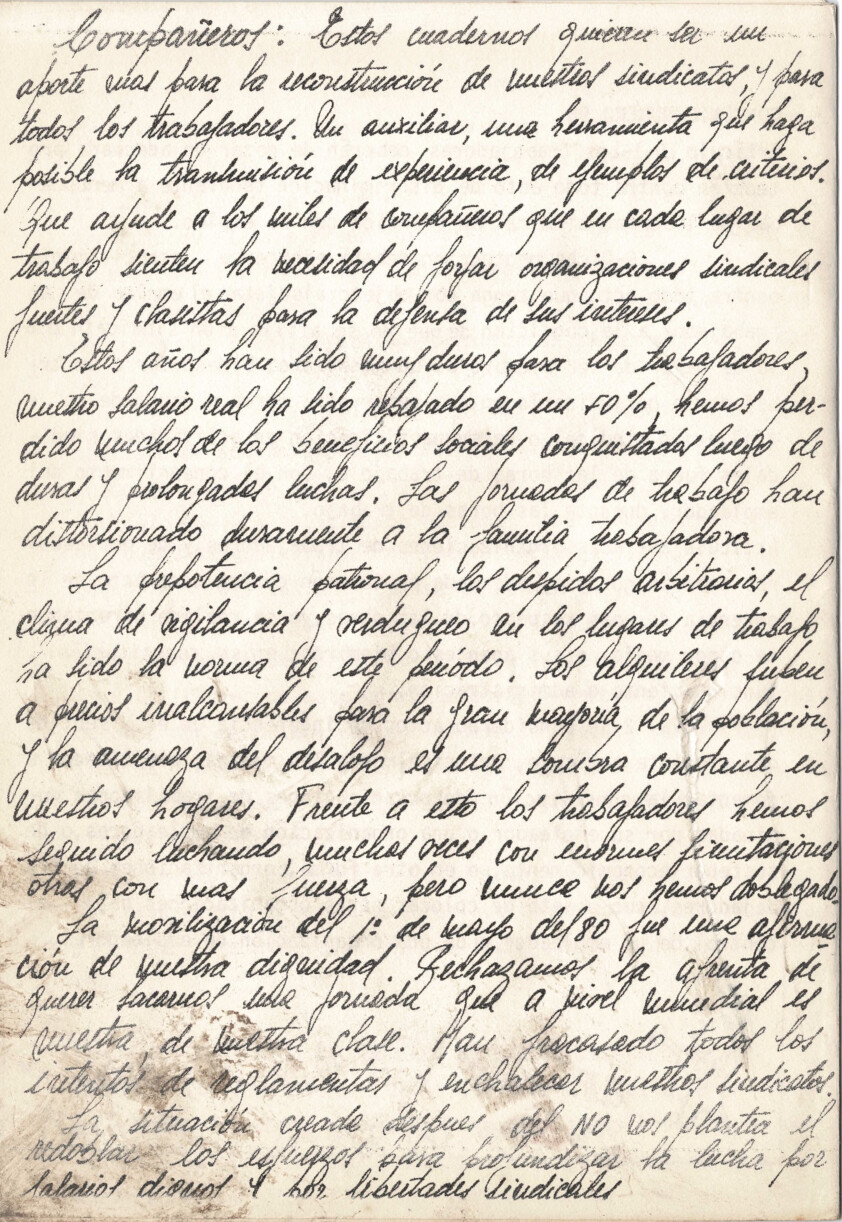 Compañeros: Estos cuadernos quieren ser un
aporte mas para la reconstrucción de nuestros sindicatos, y para
todos los trabajadores. Un auxiliar, una herramienta que haga
posible la transmisión de experiencia, de ejemplos de criterios.
Que ayude a los miles de compañeros que en cada lugar de
trabajo sienten la necesidad de forjar organizaciones sindicales
fuertes y clasistas para la defensa de sus intereses.
Estos años han sido muy duros para los trabajadores,
nuestro salario real ha sido rebajado en un 50%, hemos per-
dido muchos de los beneficios sociales conquistados luego de
duras y prolongadas luchas. Las jornadas de trabajo han
distorsionado duramente a la familia trabajadora.
La prepotencia patronal, los despidos arbitrarios, el
clima de vigilancia y verdugueo en los lugares de trabajo
ha sido la norma de este período. Los alquileres suben
a precios inalcansables para la gran mayoría, de la población,
y la amenaza del desalojo es una sombra constante en
nuestros hogares. Frente a esto los trabajadores hemos
seguido luchando, muchas veces con enormes limitaciones
otras con mas fuerza, pero nunca nos hemos doblegado.
La movilización del 1º de mayo del 80 fue una afirma
ción de nuestra dignidad. Rechazamos la afrenta de
querer sacarnos una jornada que a nivel mundial es
nuestra, de nuestra clase. Han fracasado todos los
intentos de reglamentar y enchalecar nuestros sindicatos.
La situación creada despues del NO nos plantea el
redoblar los esfuerzos para profundizar la lucha por
salarios dignos y por libertades sindicales